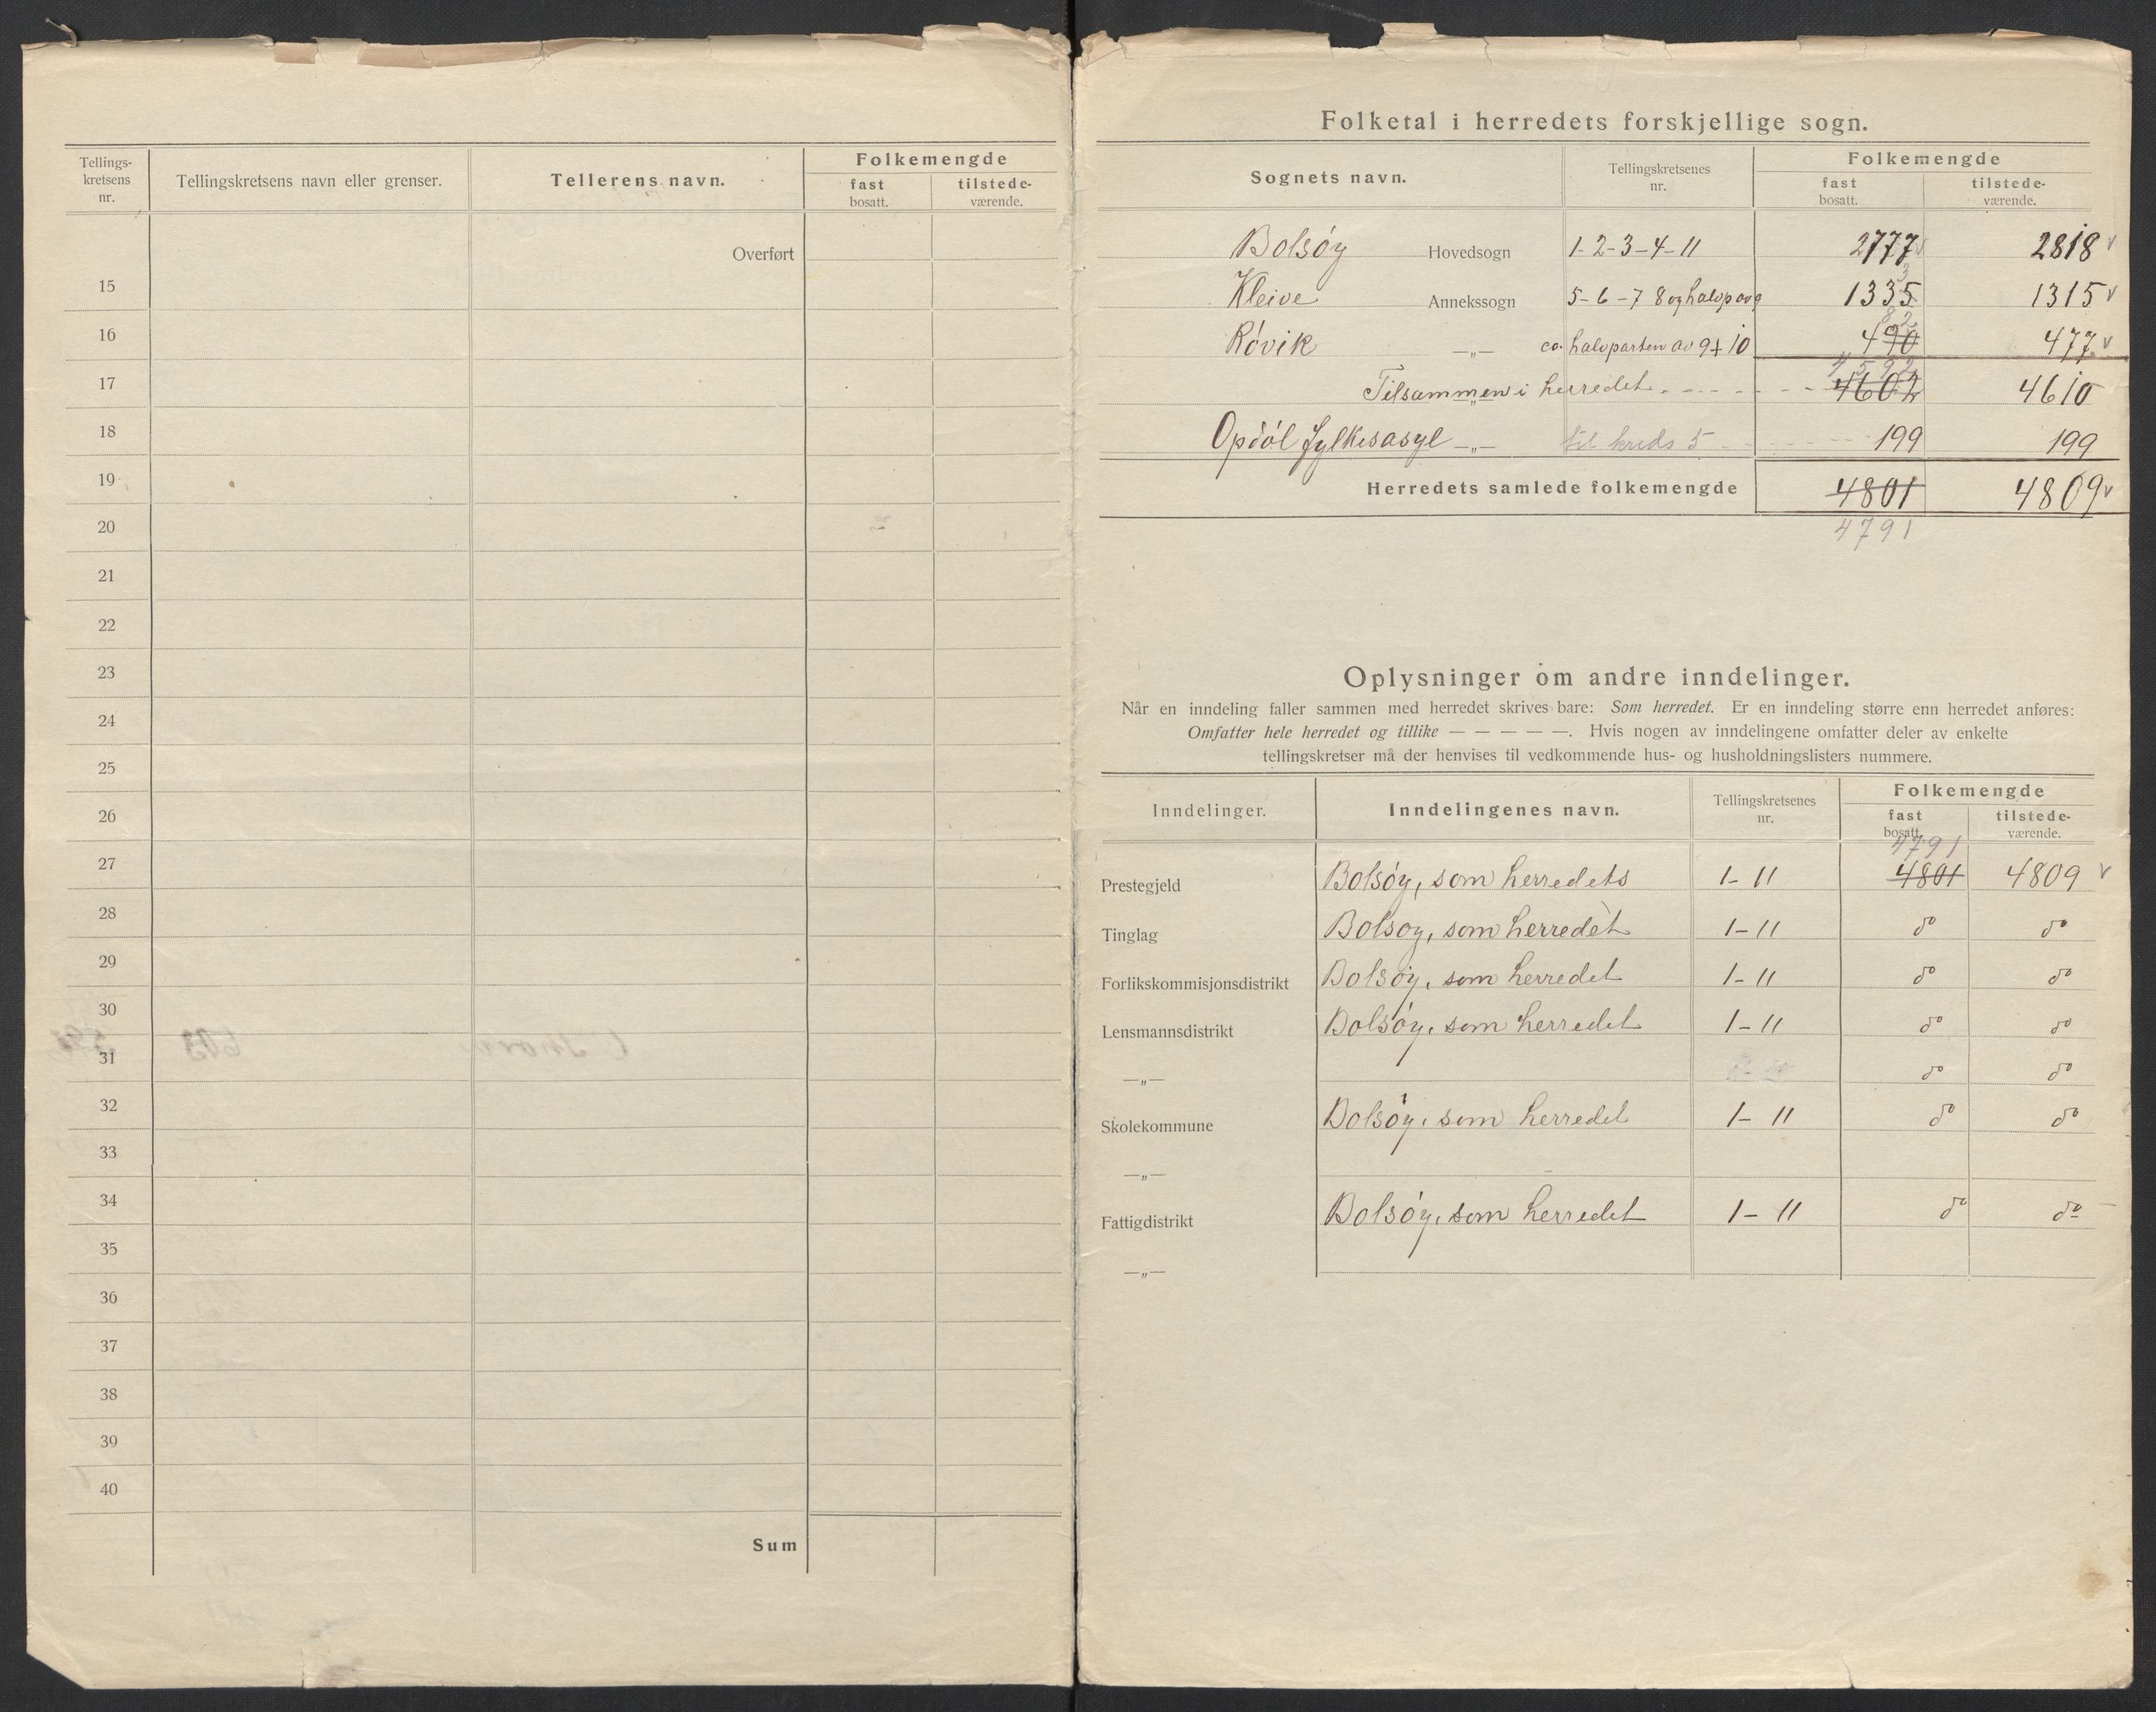 Tellings-
kretsens
nr.
Tellingskretsens navn eller grenser.
Tellerens navn.
Folkemengde
fast
bosatt.
tilstede-
værende.
Overført
15
16
17
18
19
20
21
22
23
24
25
26
27
28
29
30
31
32
33
34
35
36
37
38
39
40
Sum
Folketal i herredets forskjellige sogn.
Sognets navn.
Tellingskretsenes
nr.
Folkemengde
fast
bosatt.
tilstede-
værende.
Bolsøy Hovedsogn 1-2-3-4-11 2777 2818 v
3
Kleive Annekssogn 5-6-7 8 og halvp av 9 1335 1315 v
82
Røvik —„— ca. halvparten av 9 + 10 490 477 v
4592
Tilsammen i herredet 4602 4610
Opdøl fylkesasyl —„— til kreds 5 199 199
Herredets samlede folkemengde 4801 4809 v
4791
Oplysninger om andre inndelinger.
Når en inndeling faller sammen med herredet skrives bare: Som herredet. Er en inndeling større enn herredet anføres:
Omfatter hele herredet og tillike — — — — —. Hvis nogen av inndelingene omfatter deler av enkelte
tellingskretser må der henvises til vedkommende hus- og husholdningslisters nummere.
Inndelinger.
Inndelingenes navn.
Tellingskretsenes
nr.
Folkemengde
fast
bosatt.
tilstede-
værende.
4791
Prestegjeld Bolsøy, som herredets 1-11 4801 4809 v
Tinglag Bolsoy, som herredet 1-11 do do
Forlikskommisjonsdistrikt Bolsøy, som herredet 1-11 do do
Lensmannsdistrikt Bolsøy, som herredet 1-11 do do
—„— do do
Skolekommune Bolsøy, som herredet 1-11 do do
—„—
Fattigdistrikt Bolsøy, som herredet 1-11 do do
—„—